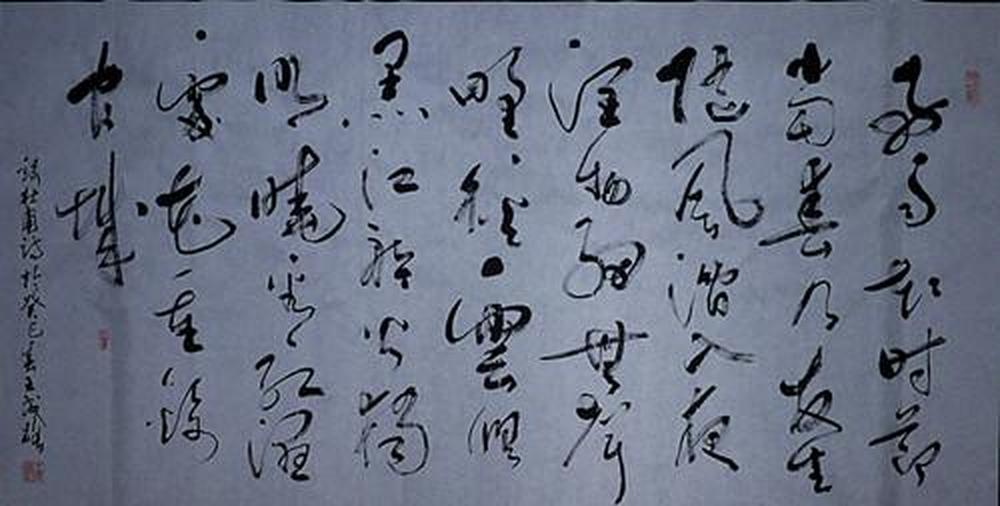 好雨知时节
当春乃发生
随风潜入夜
润物细無声
野径雲俱
黑江船火独
明晓看红湿
處花重锦
官城
录杜甫诗於癸巳春王